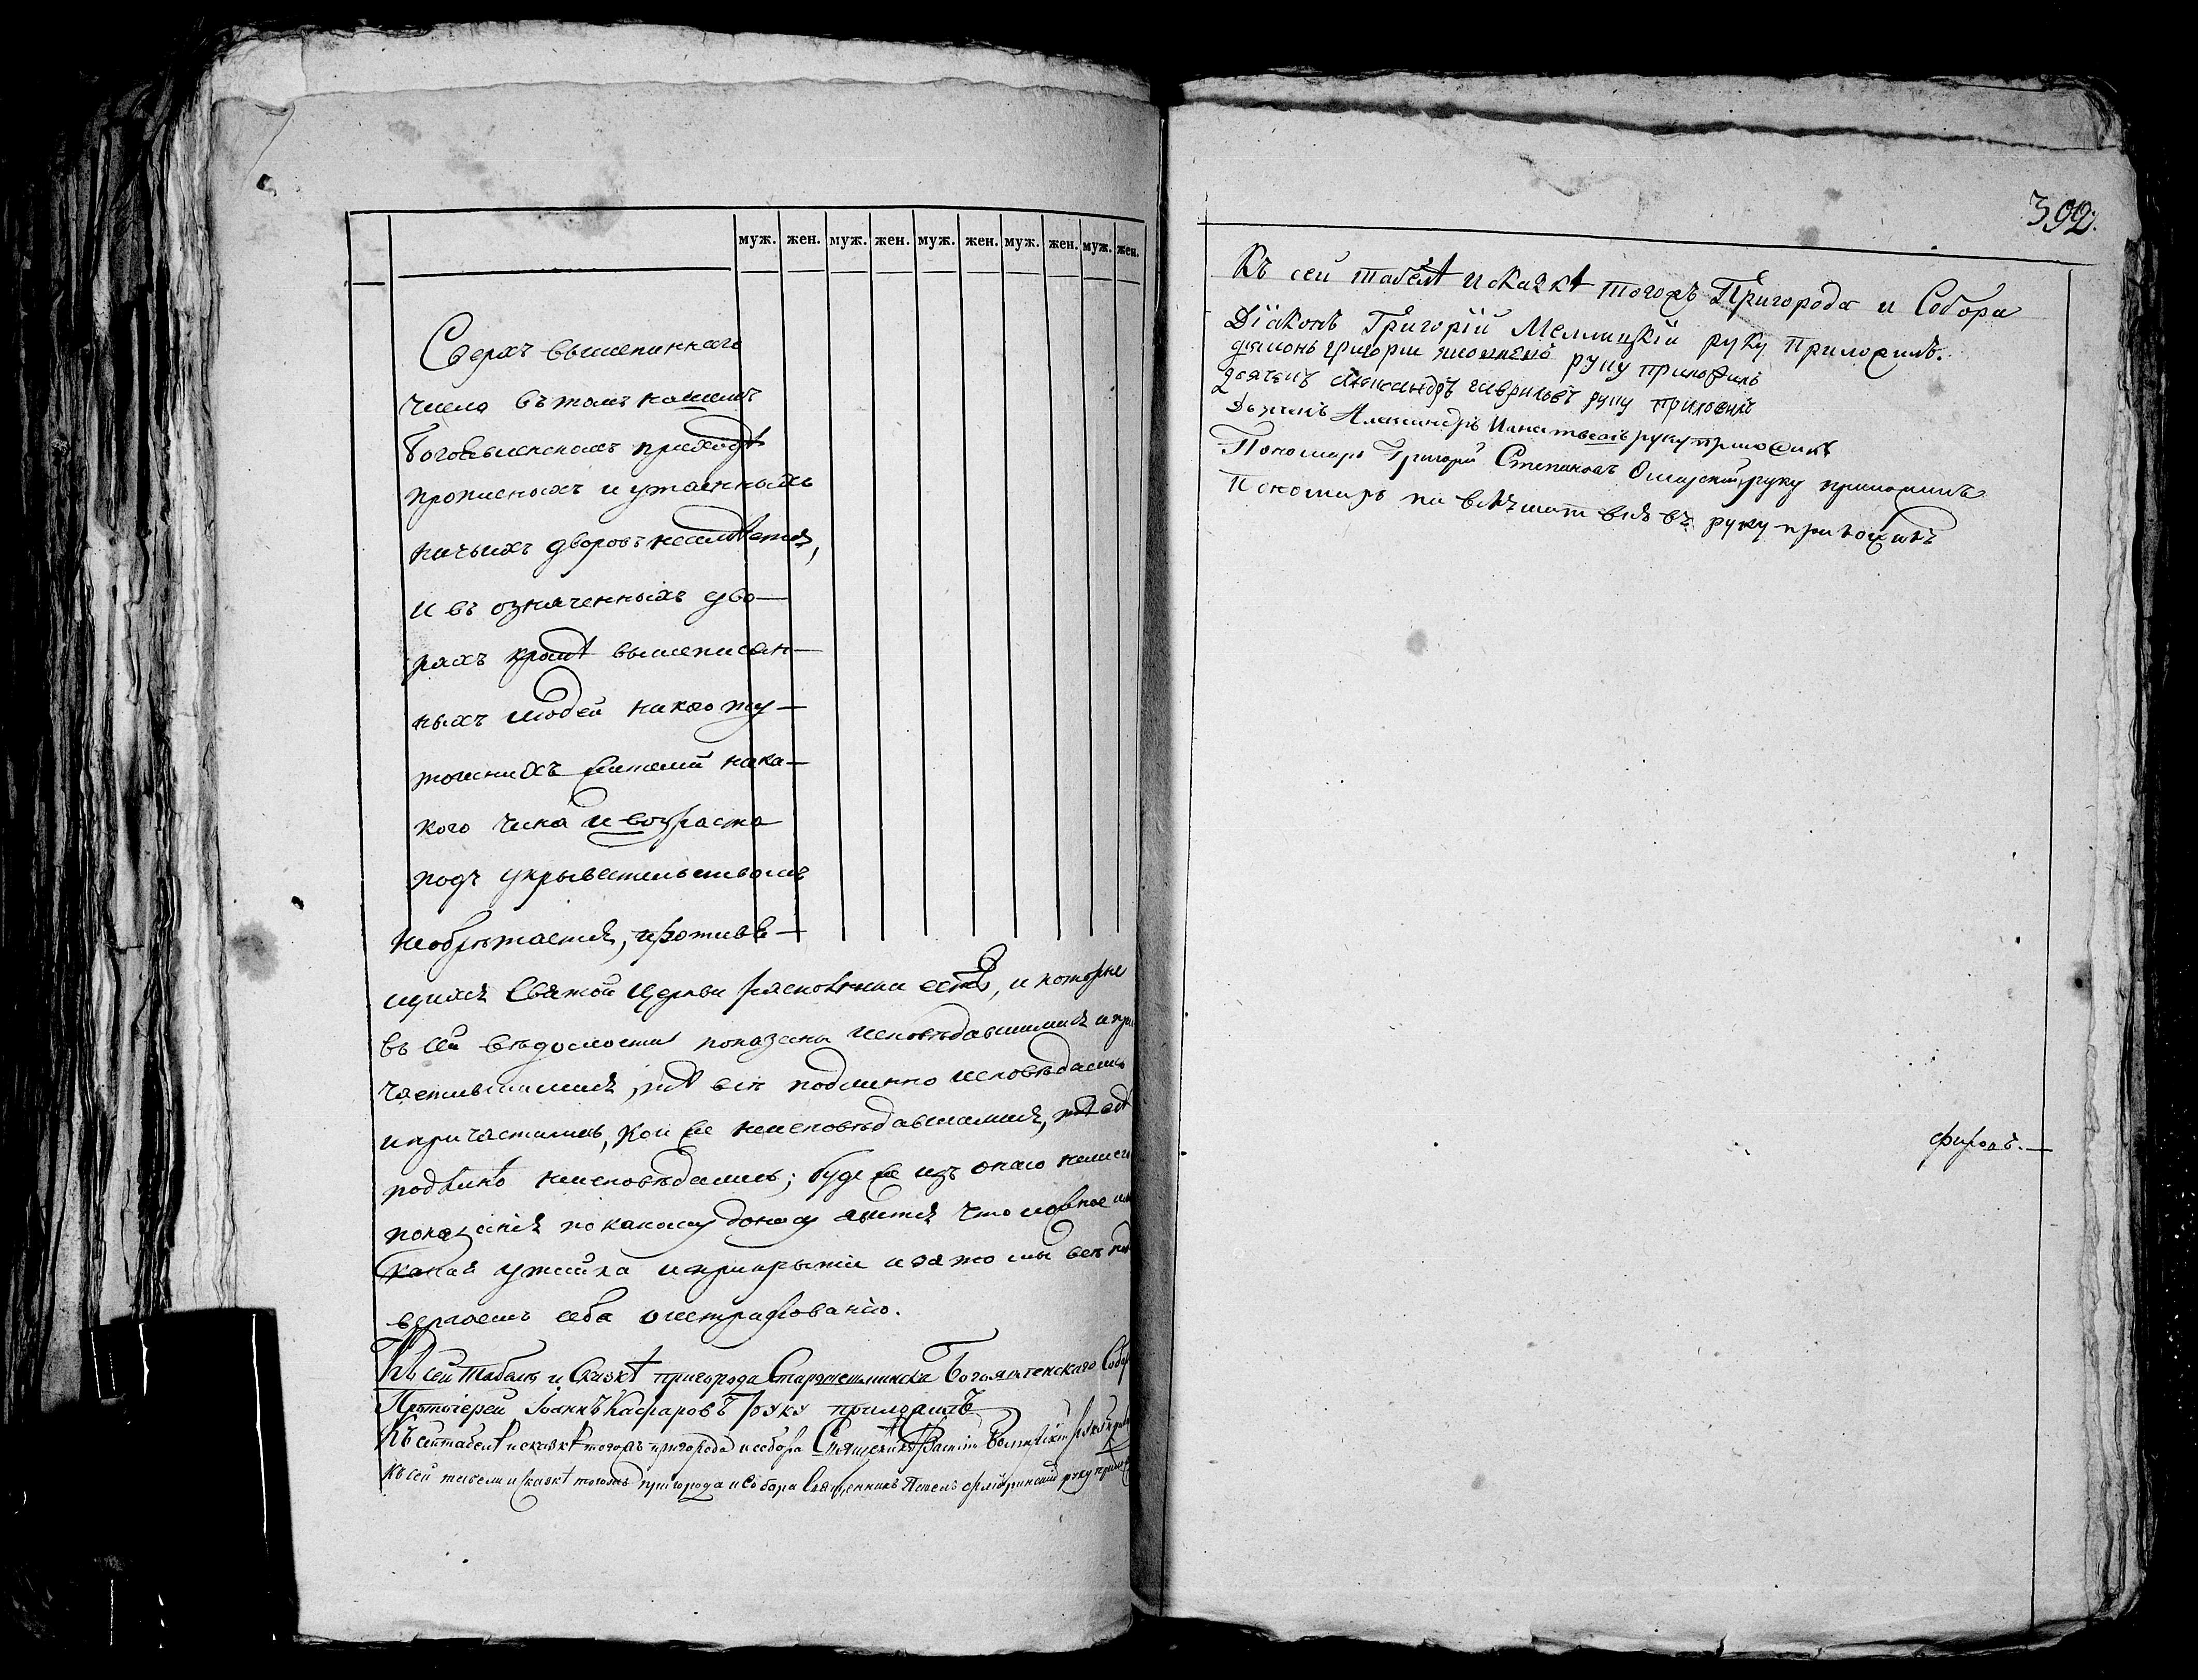 муж. жен. муж. жен. муж. жен. муж. жен. муж. жен.
Сверхъ вышеписаннаго
числа въ томъ нашемъ
Богоявленскомъ приходѣ
прописныхъ и утаенныхъ
ничьихъ дворовъ неимѣется,
и въ означенныхъ дво-
рахъ кромѣ вышеписан-
ныхъ людей никого ту-
тошнихъ жителей ника-
кого чина и возраста
подъ укрывательствомъ
необрѣтается, противя-
щихся Святой Церкви раскольники есть, и которые
въ сей вѣдомости показаны исповѣдавшимися и при
частившимися, тѣ всѣ подлинно исповѣдались
и причастились, кои же неисповѣдавшимися, тѣ всѣ
подлинно неисповѣдались; буде же изъ онаго нашего
показанія по какому доносу явится что ложное или
какая утайка и прикрытіе и за то мы всѣ под
вергаемъ себя оштрафованію.
Къ сей табелѣ и сказкѣ пригорода Старошешминска Богоявленскаго Собора
Протоіерей Іоаннъ руку приложилъ
Къ сей табелѣ и сказкѣ тогожъ пригорода и собора Священникъ
Къ сей табели и сказкѣ тогожъ пригорода и собора Священникъ руку прилож
392.
Къ сей табелѣ и сказкѣ тогожъ Пригорода и Собора
Діаконъ Григорій руку приложилъ.
Григории руку приложилъ
Александръ Гавриловъ руку приложилъ
Александръ Игнатьевъ руку приложилъ
Пономарь Григорей Степановъ руку приложилъ
Пономарь руку приложилъ